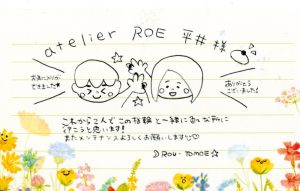 atelier ROE 平井 様
お気に入りが
できました☆
ありがとう
ございました!
これから2人で この指輪と一緒に 色々な所に
行こうと思います!
またメンテナンスよろしくお願いします♡
TOMOE☆